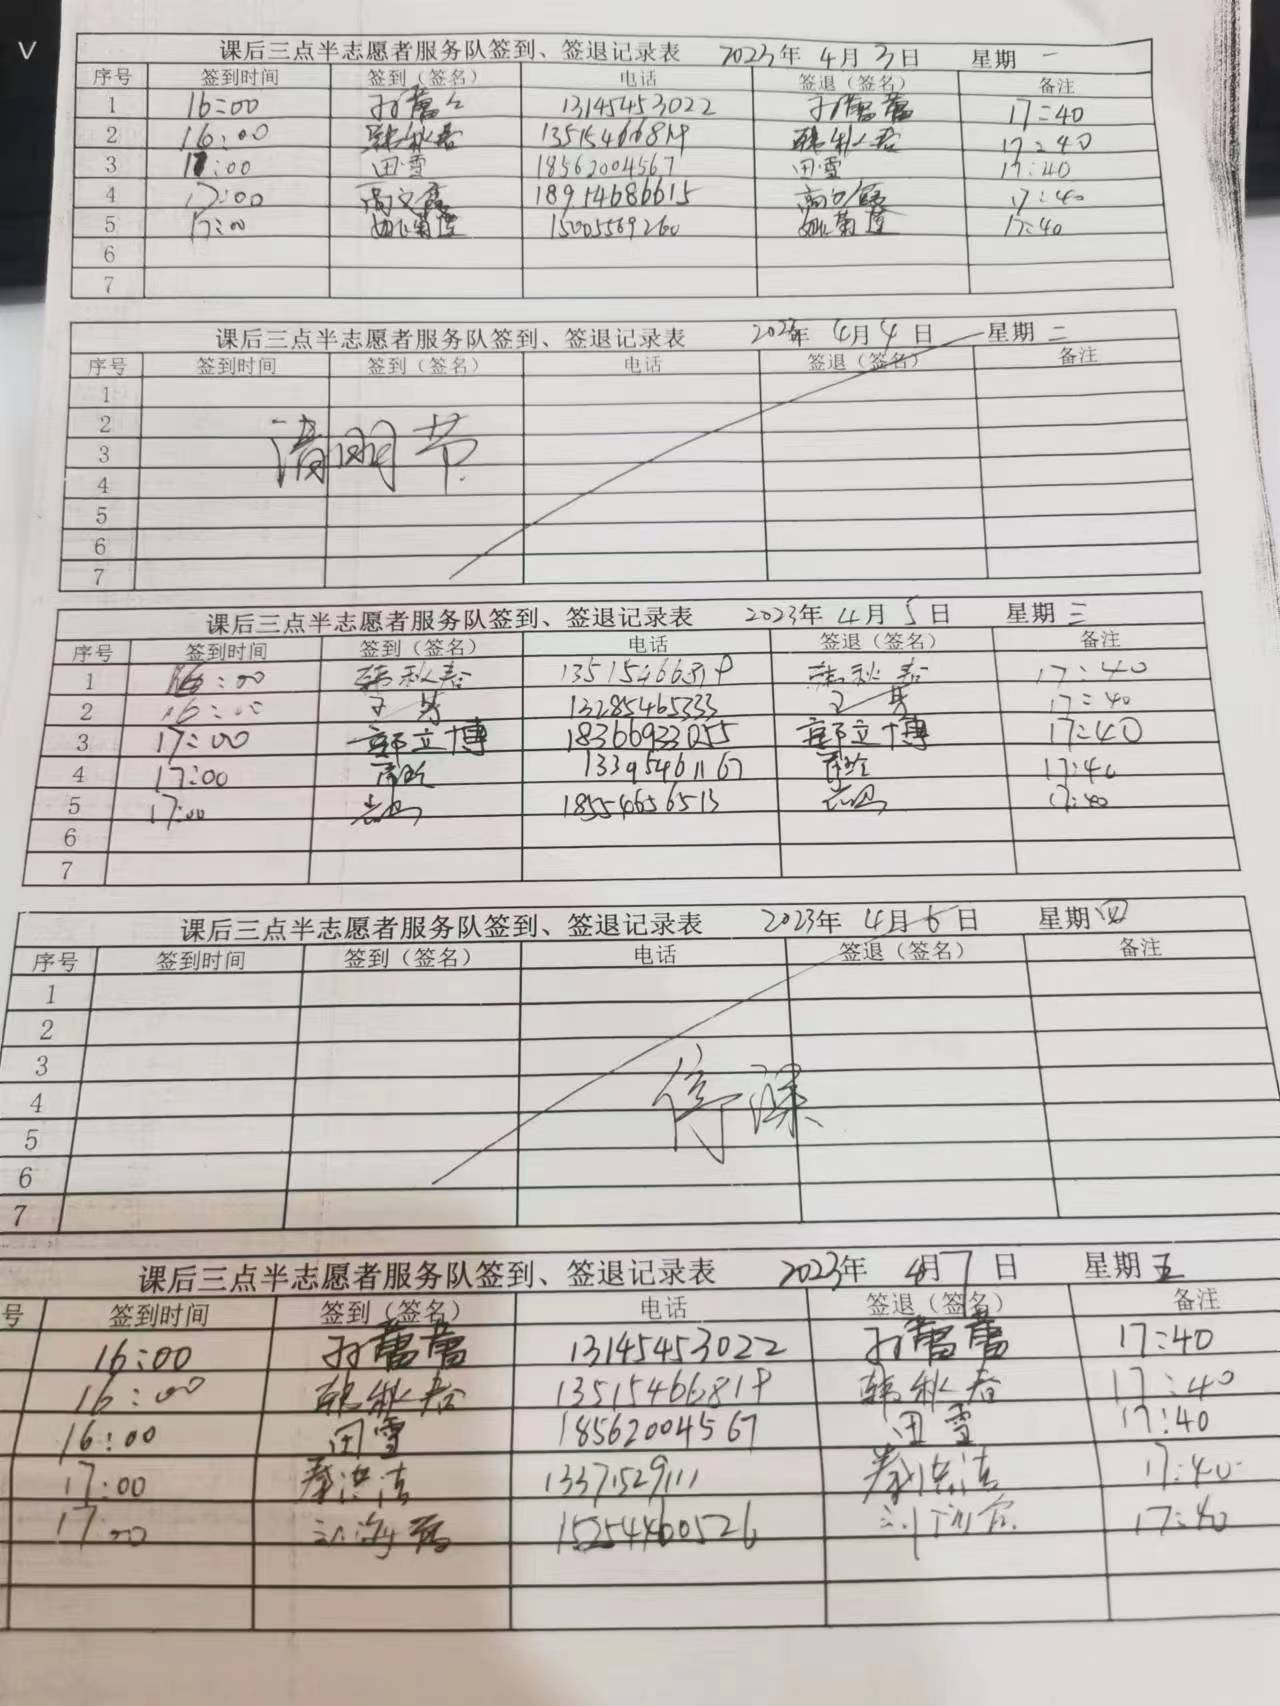 课后三点半志愿者服务队签到、签退记录表 2023年 4月 3日 星期 一
序号 签到时间 签到（签名） 电话 签退（签名） 备注
1 16:00 孙蕾 13145453022 孙蕾蕾 17:40
2 16:00 韩秋香 韩秋香 17:40
3 17:00 田雪 18562004567 田雪 17:40
4 17:00 高文霞 18954686615 17:40
5 17:00 姚菊莲 15005569260 姚菊莲 17:40
6
7
课后三点半志愿者服务队签到、签退记录表 2023年 4月 4日 星期 二
序号 签到时间 签到（签名） 电话 签退（签名） 备注
1
2
3
4
5
6
7
清明节
课后三点半志愿者服务队签到、签退记录表 2023年 4月 5日 星期 三
序号 签到时间 签到（签名） 电话 签退（签名） 备注
1 16:00 韩秋香 韩秋香 17:40
2 16:00 13285465333 17:40
3 17:00 郭立博 18366933055 郭立博 17:40
4 17:00 13395461167 17:40
5 17:00 18554656513 17:40
6
7
课后三点半志愿者服务队签到、签退记录表 2023年 4月 6日 星期 四
序号 签到时间 签到（签名） 电话 签退（签名） 备注
1
2
3
4
5
6
7
停课
课后三点半志愿者服务队签到、签退记录表 2023年 4月 7日 星期 五
号 签到时间 签到（签名） 电话 签退（签名） 备注
16:00 孙蕾蕾 13145453022 孙蕾蕾 17:40
16:00 韩秋香 韩秋香 17:40
16:00 田雪 18562004567 田雪 17:40
17:00 秦洪洁 13371529111 秦洪洁 17:40
17:00 15254460526 17:40